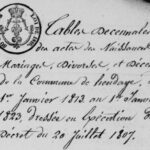 Tables Decennales
des actes des Naissances
Mariages, Divorces, et Décè
de la Commune de hendaye,
1er Janvier 1813 au 1er Janvie
1823, Dressée en Exécution
Décret du 20 Juillet 1807.